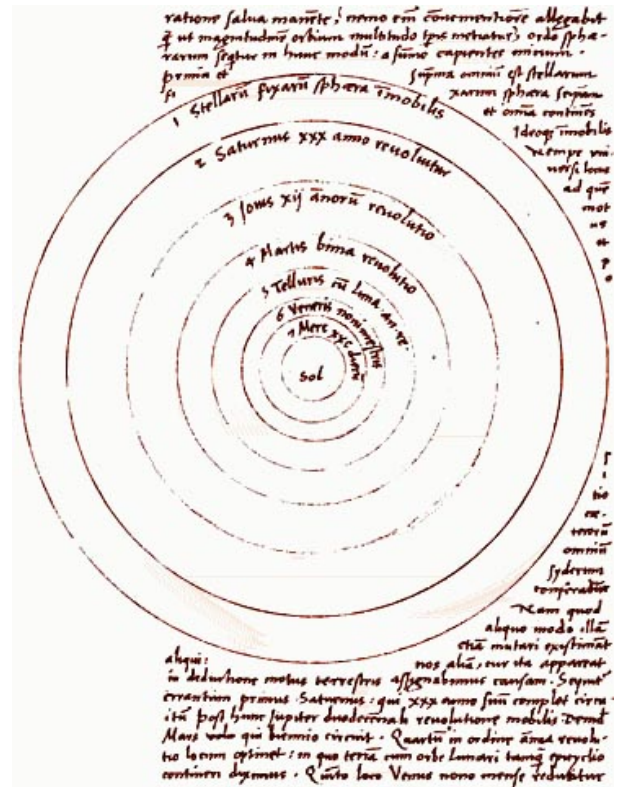 ratione salua manēte, nemo em̄ cōuenientiorē allegabit
q̄ ut magnitudinē orbium multitudo tp̄is metiatur, ordo sphæ-
rarum seqtur in hunc modū: a sūmo capientes initium.
prima et suprema omniū est stellarum
fi xarum sphæra seipsam
et omīa continēs
Ideoq; īmobilis
Nempe vni
uersi locus
ad quē
mot
us
et
p
o
1 Stellarū fixarū sphæra īmobilis
2 Saturnus xxx anno reuoluitur
3 Iouis xij annorū reuolutio
4 Martis bima reuolutio
5 Telluris cū Luna an. re.
6 Veneris nonimestris
7 Merc xxc dierū
Sol
s
i
tio
ce-
terorū
omniū
syderum
conferatur
Nam quod
aliquo modo illā
etiā mutari existimāt
aliqui: nos aliā, cur ita appareat
in deductione motus terrestris assignabimus causam. Sequit̄
errantium primus Saturnus: qui xxx anno suū complet circu-
itū post hunc Jupiter duodecennali reuolutione mobilis Deinde
Mars qui biennio circuit. Quartū in ordine annua reuolu-
tio locum optinet: in quo terrā cum orbe Lunari tamq̄ epicyclo
contineri diximus. Quinto loco Venus nono mense reducitur